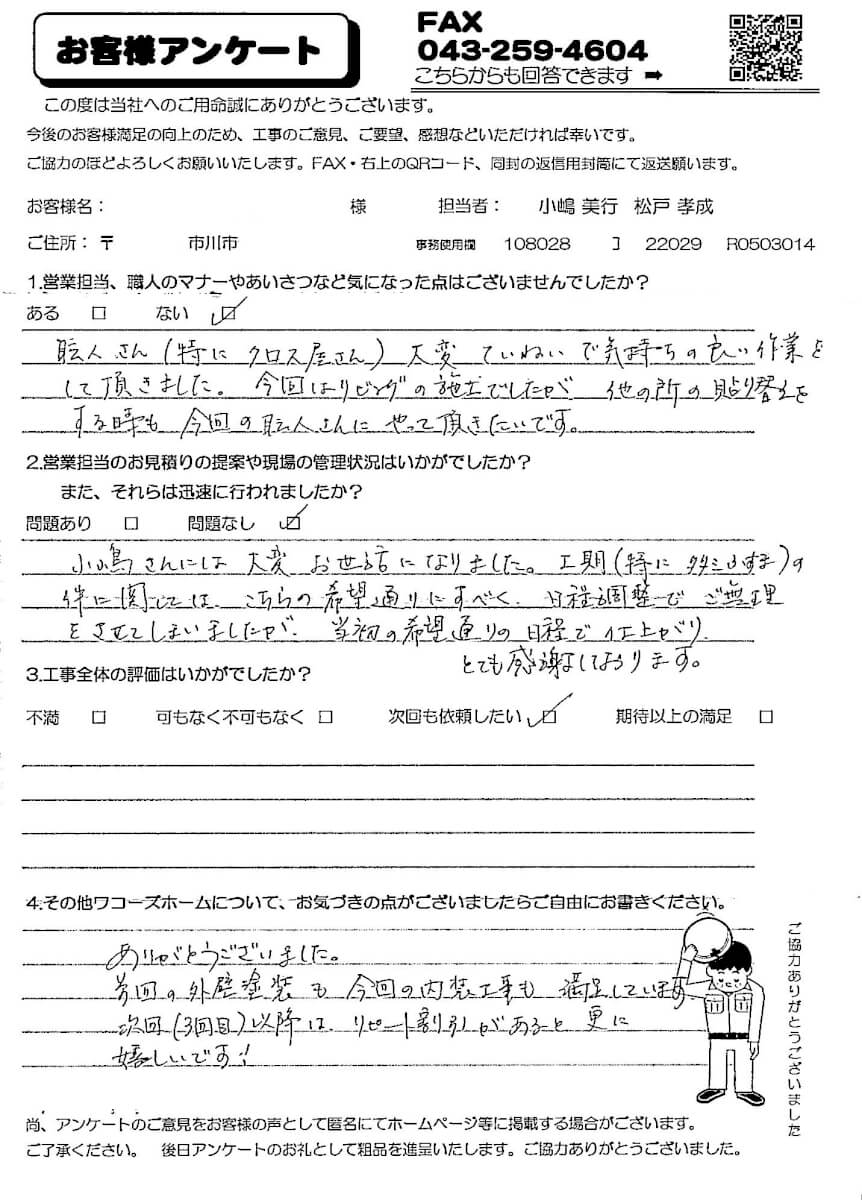 お客様アンケート
FAX
043-259-4604
こちらからも回答できます ➡
この度は当社へのご用命誠にありがとうございます。
今後のお客様満足の向上のため、工事のご意見、ご要望、感想などいただければ幸いです。
ご協力のほどよろしくお願いいたします。FAX・右上のQRコード、同封の返信用封筒にて返送願います。
お客様名： 様 担当者： 小嶋 美行 松戸 孝成
ご住所：〒 市川市 事務使用欄 108028 コ 22029 R0503014
1.営業担当、職人のマナーやあいさつなど気になった点はございませんでしたか？
ある □ ない ☑
職人さん(特に クロス屋さん) 大変 ていねいで気持ちの良い作業を
して頂きました。 今回はリビングの施工でしたが 他の所の貼り替えを
する時も 今回の職人さんに やって頂きたいです。
2.営業担当のお見積りの提案や現場の管理状況はいかがでしたか？
また、それらは迅速に行われましたか？
問題あり □ 問題なし ☑
小嶋さんには 大変 お世話になりました。工期(特に タタミふすま)の
件に関しては、こちらの希望通りにすべく、日程調整でご無理
をさせてしまいましたが、当初の希望通りの日程で仕上がり、
とても感謝しております。
3.工事全体の評価はいかがでしたか？
不満 □ 可もなく不可もなく □ 次回も依頼したい ☑ 期待以上の満足 □
4.その他ワコーズホームについて、お気づきの点がございましたらご自由にお書きください。
ありがとうございました。
前回の外壁塗装も 今回の内装工事も 満足しています
次回(3回目)以降は リピート割引があると更に
嬉しいです！
ご協力ありがとうございました
尚、アンケートのご意見をお客様の声として匿名にてホームページ等に掲載する場合がございます。
ご了承ください。 後日アンケートのお礼として粗品を進呈いたします。ご協力ありがとうございました。